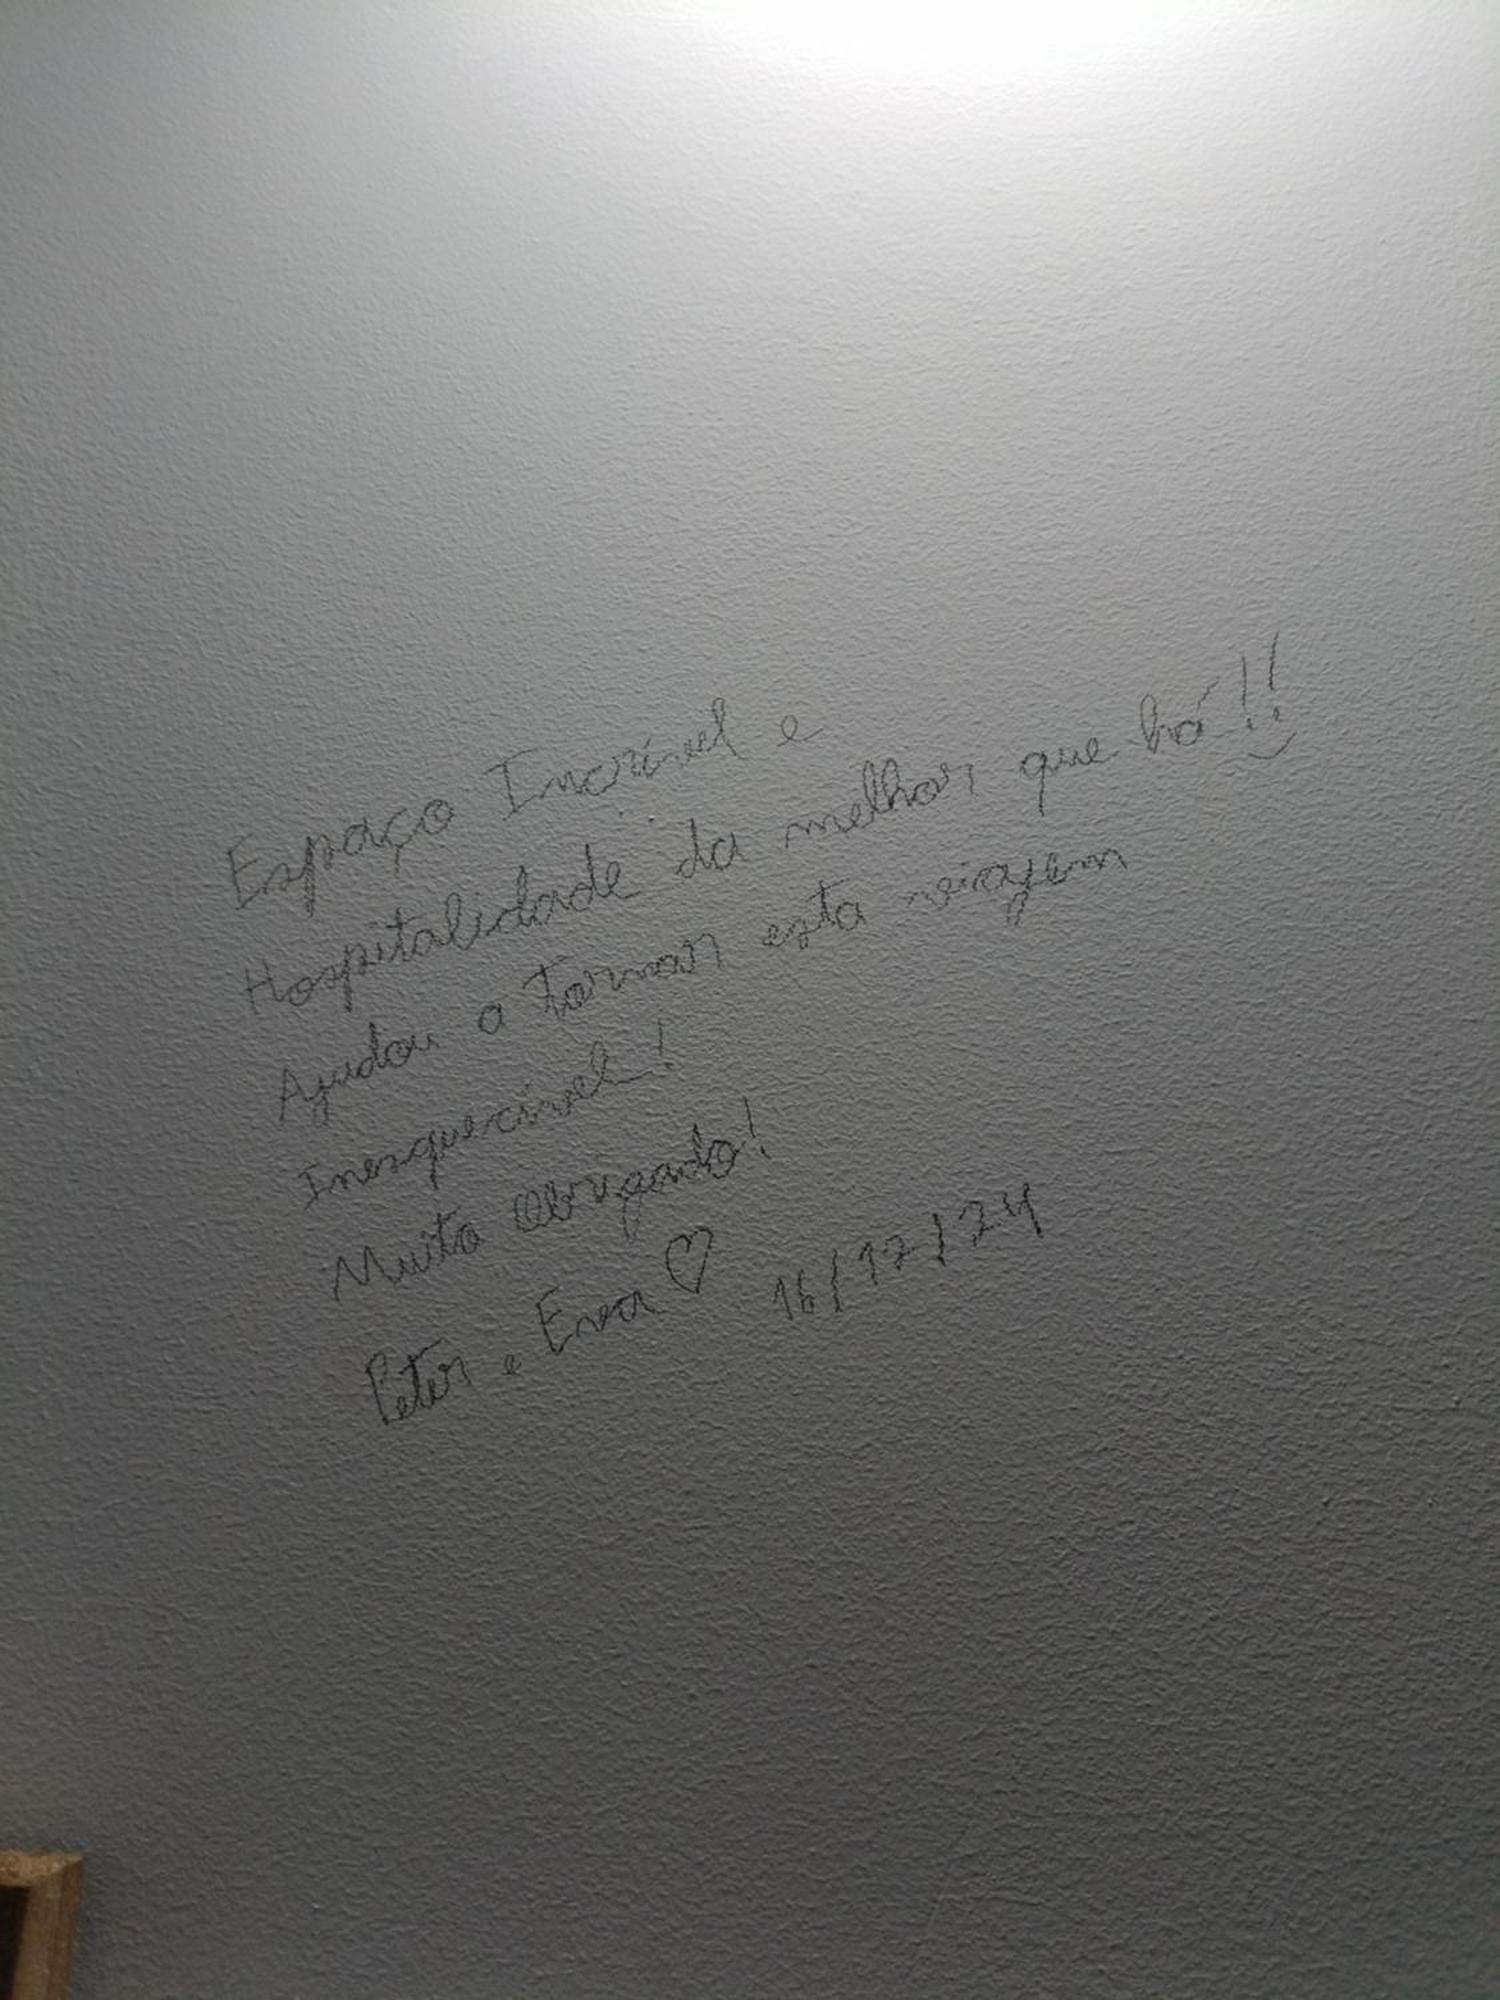 Espaço Incrível e
Hospitalidade da melhor que há!!
Ajudou a tornar esta viagem
Inesquecível!
Muito Obrigado!
Peter e Enea ♡ 16/12/24